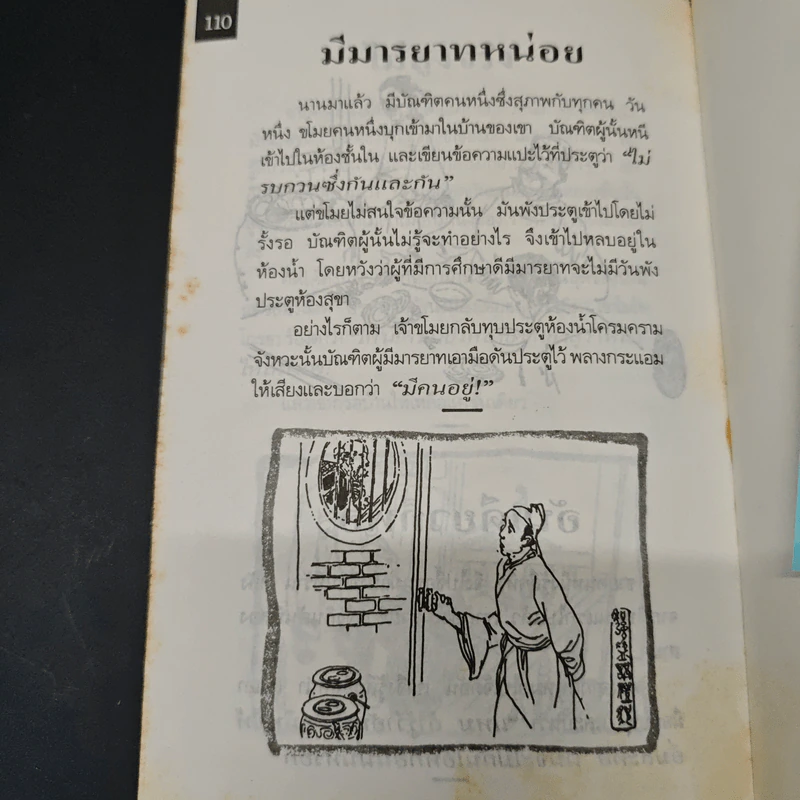 110
มีมารยาทหน่อย
นานมาแล้ว มีบัณฑิตคนหนึ่งซึ่งสุภาพกับทุกคน วัน
หนึ่ง ขโมยคนหนึ่งบุกเข้ามาในบ้านของเขา บัณฑิตผู้นั้นหนี
เข้าไปในห้องชั้นใน และเขียนข้อความแปะไว้ที่ประตูว่า “ไม่
รบกวนซึ่งกันและกัน”
แต่ขโมยไม่สนใจข้อความนั้น มันพังประตูเข้าไปโดยไม่
รั้งรอ บัณฑิตผู้นั้นไม่รู้จะทำอย่างไร จึงเข้าไปหลบอยู่ใน
ห้องน้ำ โดยหวังว่าผู้ที่มีการศึกษาดีมีมารยาทจะไม่มีวันพัง
ประตูห้องสุขา
อย่างไรก็ตาม เจ้าขโมยกลับทุบประตูห้องน้ำโครมคราม
จังหวะนั้นบัณฑิตผู้มีมารยาทเอามือดันประตูไว้ พลางกระแอม
ให้เสียงและบอกว่า “มีคนอยู่!”